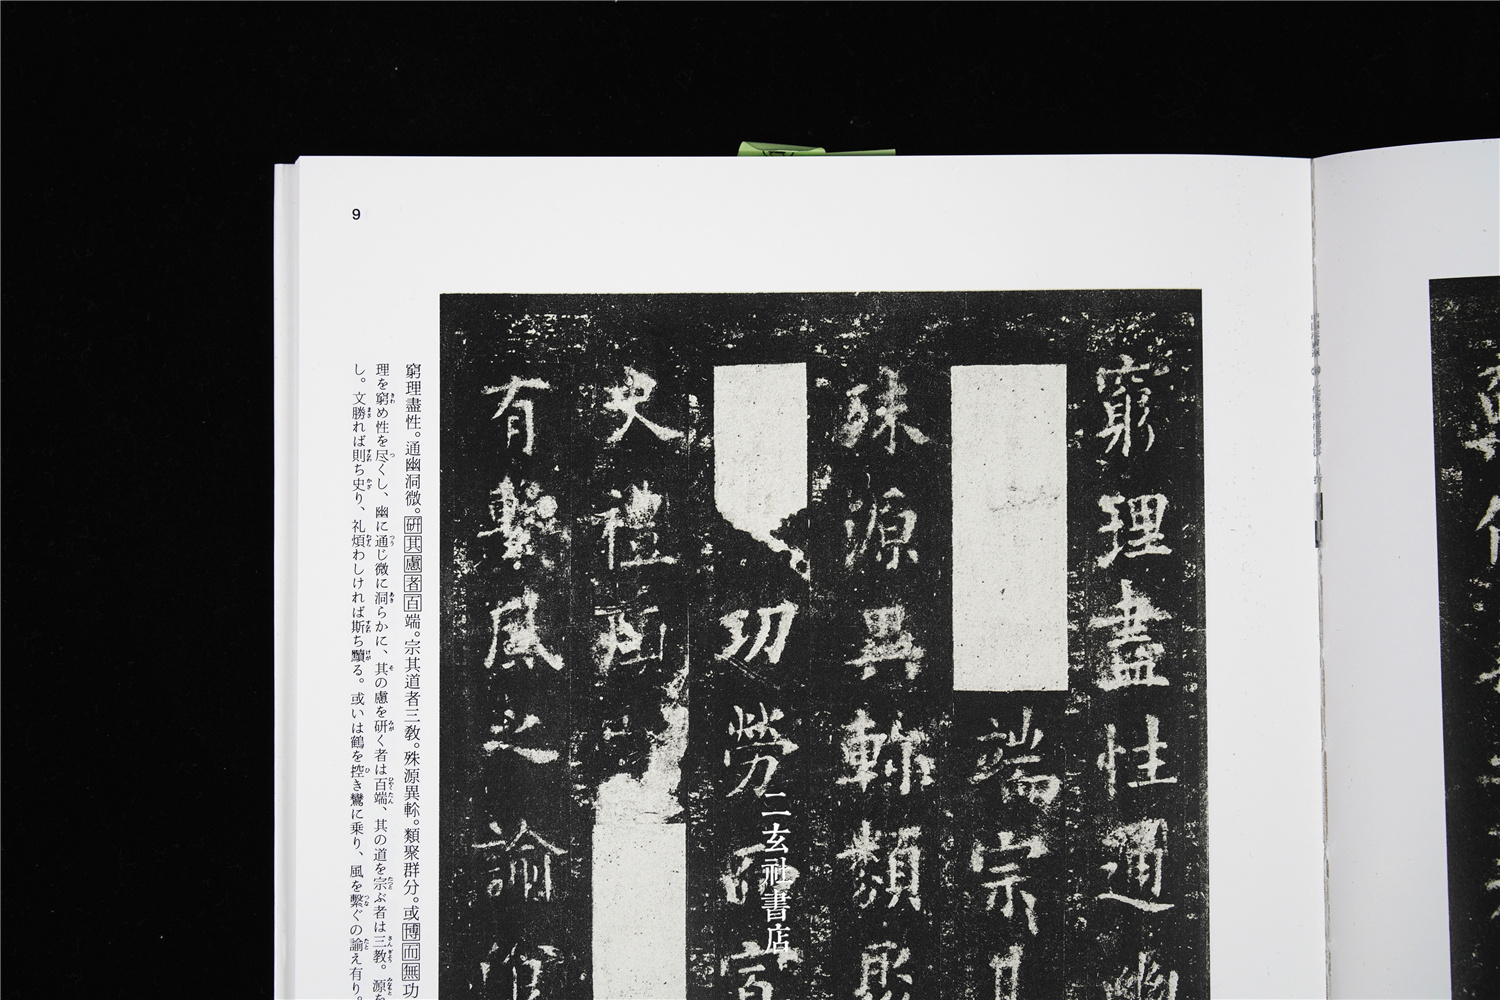 9
窮理盡性通幽
端宗其
殊源異軫類聚
功勞而宣
史禮煩
有繫風之諭唯
二玄社書店
窮理盡性。通幽洞微。研其慮者百端。宗其道者三教。殊源異軫。類聚群分。或博而無功
理を窮め性を尽くし、幽に通じ微に洞らかに、其の慮を研く者は百端、其の道を宗ぶ者は三教。源を
し。文勝れば則ち史り、礼煩わしければ斯ち黷る。或いは鶴を控き鸞に乗り、風を繫ぐの諭え有り。